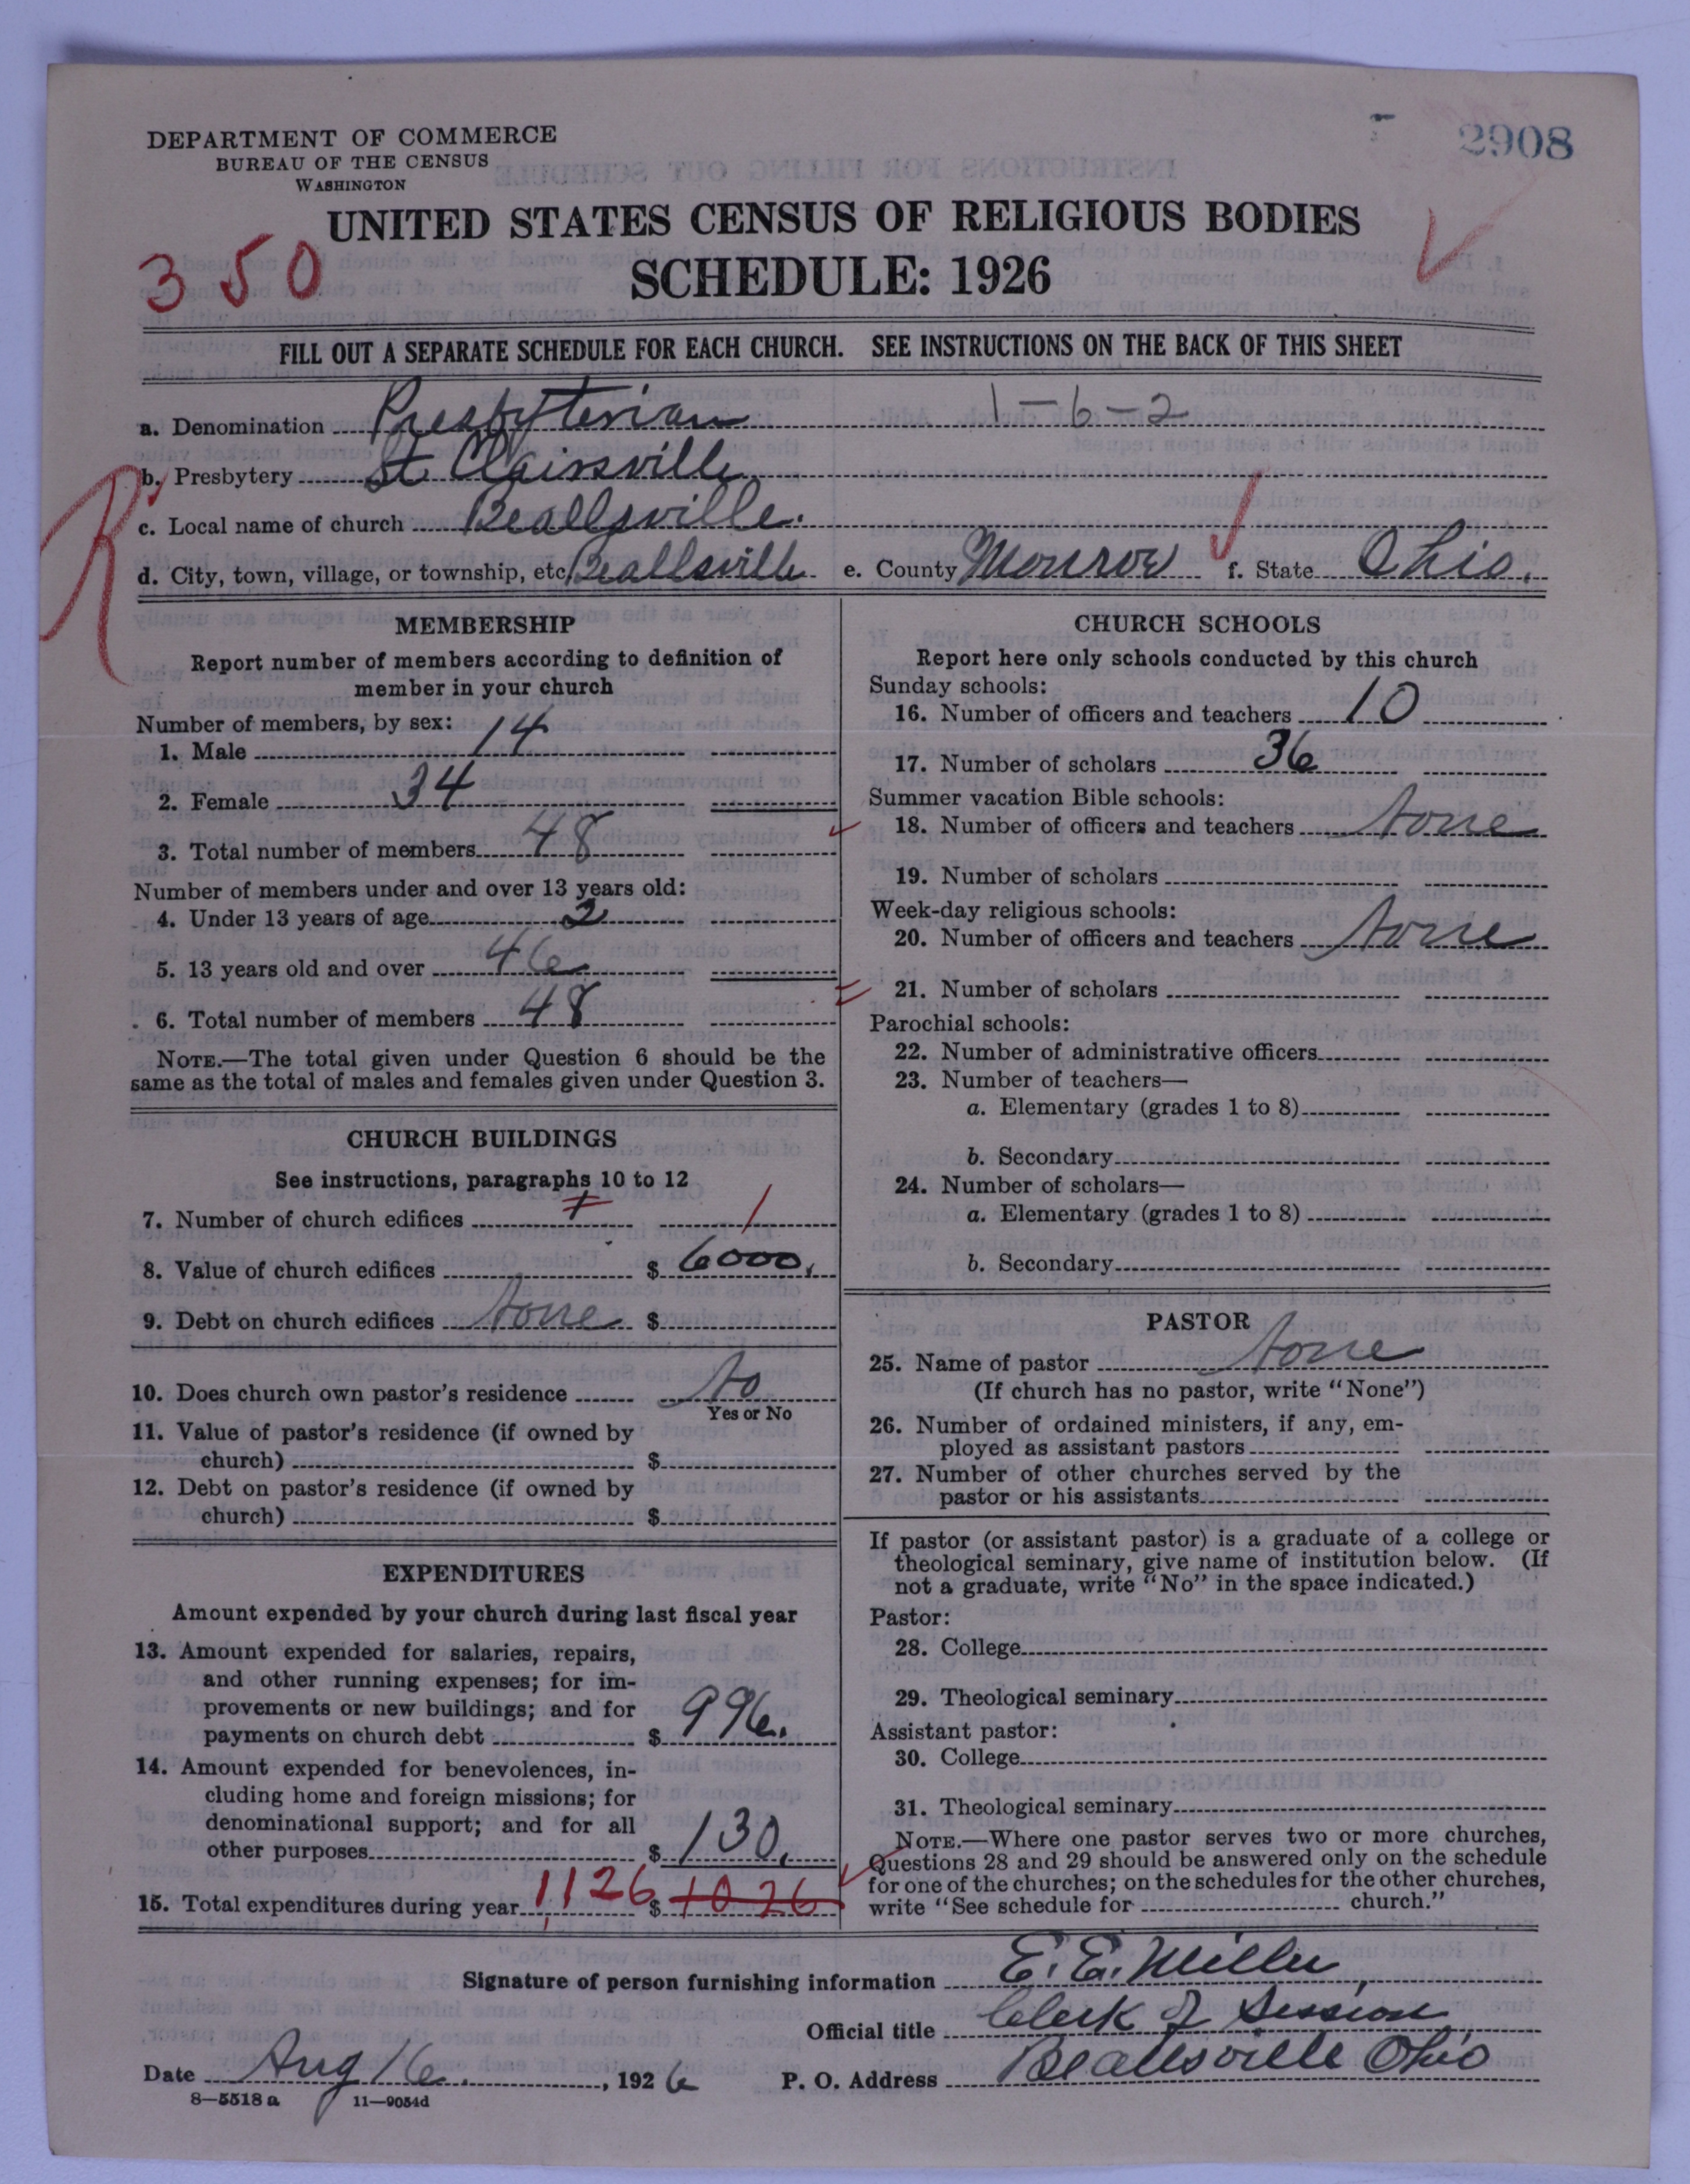 2908
DEPARTMENT OF COMMERCE
BUREAU OF THE CENSUS
WASHINGTON
UNITED STATES CENSUS OF RELIGIOUS BODIES
350
SCHEDULE: 1926
FILL OUT A SEPARATE SCHEDULE FOR EACH CHURCH. SEE INSTRUCTIONS ON THE BACK OF THIS SHEET
a. Denomination Presbyterian 1-6-2
R
b. Presbytery St. Clairsville
c. Local name of church Beallsville.
d. City, town, village, or township, etc. Beallsville e. County Monroe f. State Ohio.
MEMBERSHIP
Report number of members according to definition of
member in your church
Number of members, by sex:
1. Male 14
2. Female 34
3. Total number of members 48
Number of members under and over 13 years old:
4. Under 13 years of age 2
5. 13 years old and over 46
6. Total number of members 48
NOTE.—The total given under Question 6 should be the
same as the total of males and females given under Question 3.
CHURCH BUILDINGS
See instructions, paragraphs 10 to 12
7. Number of church edifices 1 1
8. Value of church edifices $ 6000.
9. Debt on church edifices None $
10. Does church own pastor's residence No
Yes or No
11. Value of pastor's residence (if owned by
church) $
12. Debt on pastor's residence (if owned by
church) $
EXPENDITURES
Amount expended by your church during last fiscal year
13. Amount expended for salaries, repairs,
and other running expenses; for im-
provements or new buildings; and for
payments on church debt $ 996.
14. Amount expended for benevolences, in-
cluding home and foreign missions; for
denominational support; and for all
other purposes $ 130.
15. Total expenditures during year 1126 $ 1026
CHURCH SCHOOLS
Report here only schools conducted by this church
Sunday schools:
16. Number of officers and teachers 10
17. Number of scholars 36
Summer vacation Bible schools:
18. Number of officers and teachers None
19. Number of scholars
Week-day religious schools:
20. Number of officers and teachers None
21. Number of scholars
Parochial schools:
22. Number of administrative officers
23. Number of teachers—
a. Elementary (grades 1 to 8)
b. Secondary
24. Number of scholars—
a. Elementary (grades 1 to 8)
b. Secondary
PASTOR
25. Name of pastor None
(If church has no pastor, write "None")
26. Number of ordained ministers, if any, em-
ployed as assistant pastors
27. Number of other churches served by the
pastor or his assistants
If pastor (or assistant pastor) is a graduate of a college or
theological seminary, give name of institution below. (If
not a graduate, write "No" in the space indicated.)
Pastor:
28. College
29. Theological seminary
Assistant pastor:
30. College
31. Theological seminary
NOTE.—Where one pastor serves two or more churches,
Questions 28 and 29 should be answered only on the schedule
for one of the churches; on the schedules for the other churches,
write "See schedule for church."
Signature of person furnishing information E. E. Miller
Official title Clerk of Session
Date Aug 16. , 1926 P. O. Address Beallsville Ohio
8—5518 a 11—9054d